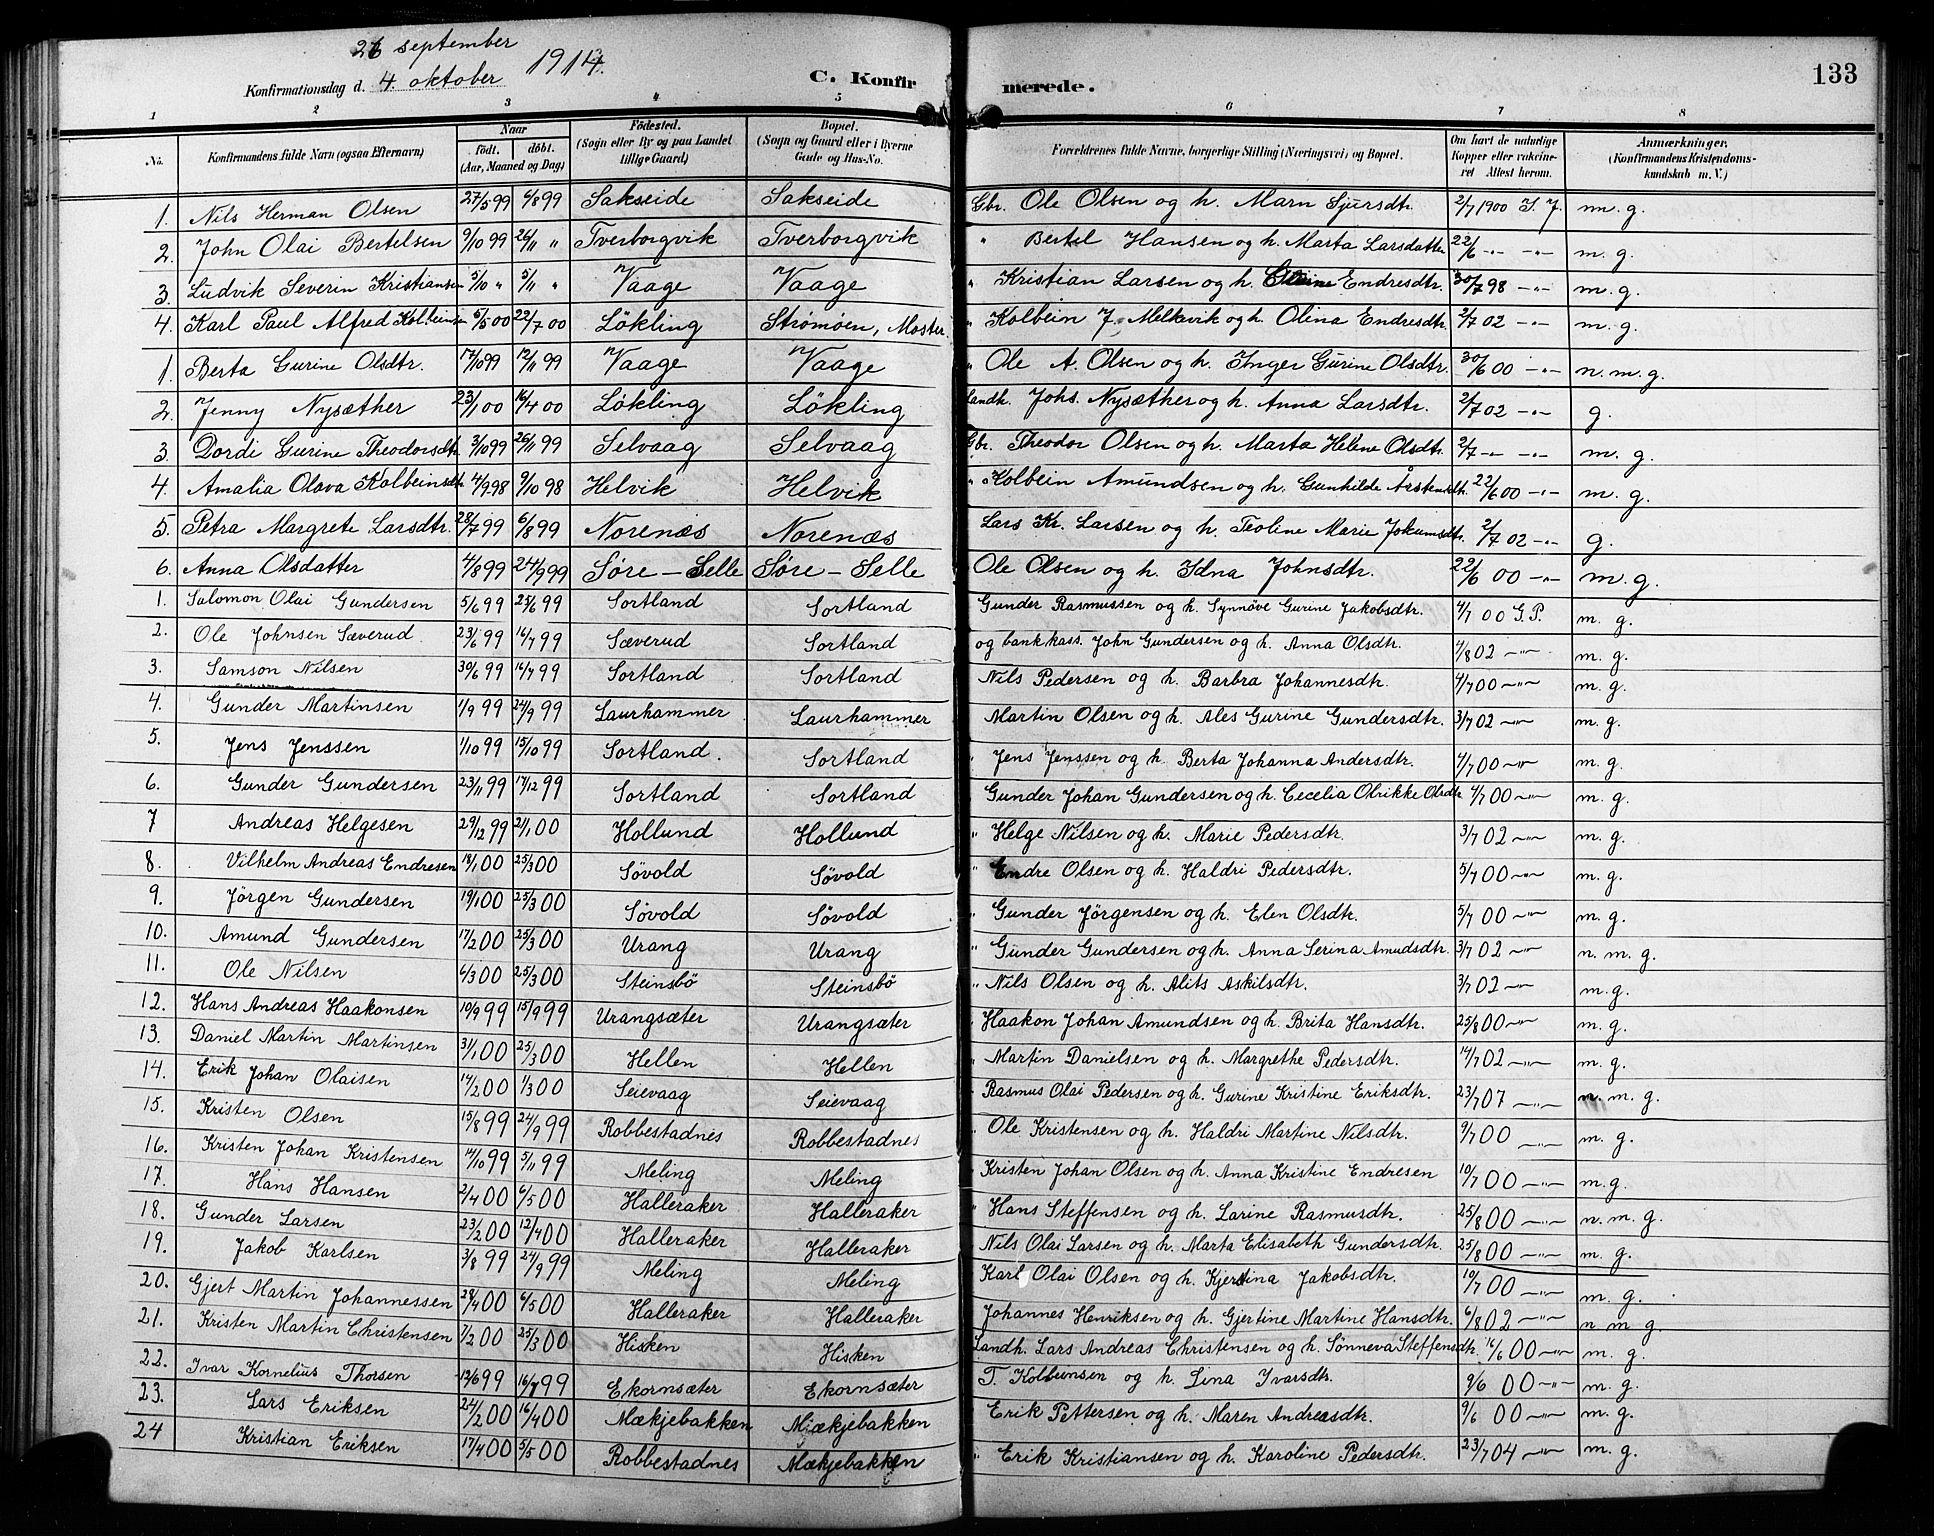 26 september
Konfirmationsdag d. 4. oktober 1914. C. Konfir merede. 133
1 2 3 4 5 6 7 8
No. Konfirmandens fulde Navn (ogsaa Efternavn) Naar födt. döbt. (Aar, Maaned og Dag) Födested. (Sogn eller By og paa Landet tillige Gaard) Bopæl. (Sogn og Gaard eller i Byerne Gade og Hus-No. Forældrenes fulde Navne, borgerlige Stilling (Næringsvei) og Bopæl. Om havt de naturlige Kopper eller vakcineret Attest herom. Anmærkninger. (Konfirmandens Kristendomskundskab m. V.)
1. Nils Herman Olsen 27/5 99 6/8 99 Sakseide Sakseide Gbr. Ole Olsen og h. Marn Sjursdtr. 2/7 1900 I. J. m. g.
2. John Olai Bertelsen 9/10 99 26/11 " Tverborgvik Tverborgvik " Bertel Hansen og h. Marta Larsdatter 22/6 -"- -"- m. g.
3. Ludvik Severin Kristiansen 5/10 " 5/11 " Vaage Vaage " Kristian Larsen og h. Endresdtr. 30/7 98 -"- m. g.
4. Karl Paul Alfred Kolbeinsen 5/5 00 22/7 00 Lökling Strømøen, Moster " Kolbein J. Melkevik og h. Olina Endresdtr. 2/7 02 -"- m. g.
1. Berta Gurine Olsdtr. 17/10 99 12/11 99 Vaage Vaage " Ole A. Olsen og h. Inger Gurine Olsdtr. 30/6 00 -"- n. m. g.
2. Jenny Nysæther 23/1 00 16/4 00 Lökling Lökling Landh. Johs. Nysæther og h. Anna Larsdtr. 2/7 02 -"- g.
3. Dordi Gurine Theodorsdtr. 3/10 99 26/11 99 Selvaag Selvaag Gbr. Theodor Olsen og h. Marta Helene Olsdtr. 2/7 -"- -"- m. g.
4. Amalia Olava Kolbeinsdtr 4/9 98 9/10 98 Helvik Helvik " Kolbein Amundsen og h. Gunhilde 22/6 00 -"- m. g.
5. Petra Margrete Larsdtr. 28/7 99 6/8 99 Norenæs Norenæs Lars Kr. Larsen og h. Teoline Marie Jokumsdtr 2/7 02 -"- g.
6. Anna Olsdatter 4/8 99 24/9 99 Søre - Selle Søre - Selle Ole Olsen og h. Idna Johnsdtr. 22/6 00 -"- m. g.
1. Salomon Olai Gundersen 5/6 99 25/6 99 Sortland Sortland Gunder Rasmussen og h. Synnöve Gurine Jakobsdtr. 4/7 00 G.P. m. g.
2. Ole Johnsen Sæverud 23/6 99 16/7 99 Sæverud Sortland og bankkass. John Gundersen og h. Anna Olsdtr. 4/8 02 -"- m. g.
3. Samson Nilsen 30/6 99 16/7 99 Sortland Sortland Nils Pedersen og h. Barbra Johannesdtr. 4/7 00 -"- m. g.
4. Gunder Martinsen 1/9 99 24/9 99 Laurhammer Laurhammer Martin Olsen og h. Ales Gurine Gundersdtr. 3/7 02 -"- m. g.
5. Jens Jenssen 1/10 99 15/10 99 Sortland. Sortland " Jens Jenssen og h. Berta Johanna Andersdtr. 4/7 00 -"- m. g.
6. Gunder Gundersen 23/11 99 17/12 99 Sortland Sortland " Gunder Johan Gundersen og h. Cecelia Olrikke Olsdtr 4/7 00 -"- m. g.
7 Andreas Helgesen 29/12 99 21/1 00 Hollund Hollund " Helge Nilsen og h. Marie Pedersdtr. 3/7 02 -"- m. g.
8. Vilhelm Andreas Endresen 18/1 00 25/3 00 Søvold Søvold " Endre Olsen og h. Haldri Pedersdtr. 5/7 00 -"- m. g.
9. Jörgen Gundersen 19/1 00 25/3 00 Søvold Søvold " Gunder Jörgensen og h. Elen Olsdtr. 5/7 00 -"- m. g.
10. Amund Gundersen 17/2 00 25/3 00 Urang Urang " Gunder Gundersen og h. Anna Serina Amudsdtr. 3/7 02 -"- n. m. g.
11. Ole Nilsen 6/3 00 25/3 00 Steinsbö Steinsbö " Nils Olsen og h. Alits Askilsdtr. 3/7 02 -"- m. g.
12. Hans Andreas Haakonsen 10/9 99 15/9 99 Urangsæter Urangsæter " Haakon Johan Amundsen og h. Brita Hansdtr. 25/8 00 -"- m. g.
13. Daniel Martin Martinsen 31/1 00 25/3 00 Hellen Hellen " Martin Danielsen og h. Margrethe Pedersdtr. 14/7 02 -"- m. g.
14. Erik Johan Olaisen 14/2 00 1/3 00 Seievaag Seievaag Rasmus Olai Pedersen og h. Gurine Kristine Eriksdtr. 23/7 07 -"- n. m. g.
15. Kristen Olsen 15/8 99 24/9 99 Robbestadnes Robbestadnes " Ole Kristensen og h. Haldri Martine Nilsdtr. 9/7 00 -"- m. g.
16. Kristen Johan Kristensen 14/10 99 5/11 99 Meling Meling " Kristen Johan Olsen og h. Anna Kristine Endresen 10/7 00 -"- m. g.
17. Hans Hansen 2/4 00 6/5 00 Halleraker Halleraker " Hans Steffensen og h. Larine Rasmusdtr. 25/8 00 -"- n. m. g.
18. Gunder Larsen 23/2 00 12/4 00 Halleraker Halleraker Nils Olai Larsen og h. Marta Elisabeth Gundersdtr. 25/8 00 -"- m. g.
19. Jakob Karlsen 3/8 99 24/9 99 Meling Meling Karl Olai Olsen og h. Kjerstina Jakobsdtr. 10/7 00 -"- m. g.
20. Gjert Martin Johannessen 28/4 00 6/5 00 Halleraker Halleraker Johannes Henriksen og h. Gjertine Martine Hansdtr. 6/8 02 -"- n m g.
21. Kristen Martin Christensen 7/2 00 25/3 00 Hisken Hisken Landh. Lars Andreas Christensen og h. Sønneva Steffensdtr. 16/6 00 -"- m. g.
22. Ivar Kornelius Thorsen 12/6 99 16/7 99 Ekornsæter Ekornsæter T. Kolbeinsen og h. Lina Ivarsdtr. 9/6 00 -"- m. g.
23. Lars Eriksen 24/2 00 16/4 00 Mækjebakken Mækjebakken Erik Pettersen og h. Maren Andreasdtr. 9/6 00 -"- m. g.
24 Kristian Eriksen 17/4 00 5/5 00 Robbestadnes Mækjebakken " Erik Kristiansen og h. Karoline Pedersdtr. 23/7 04 -"- m. g.